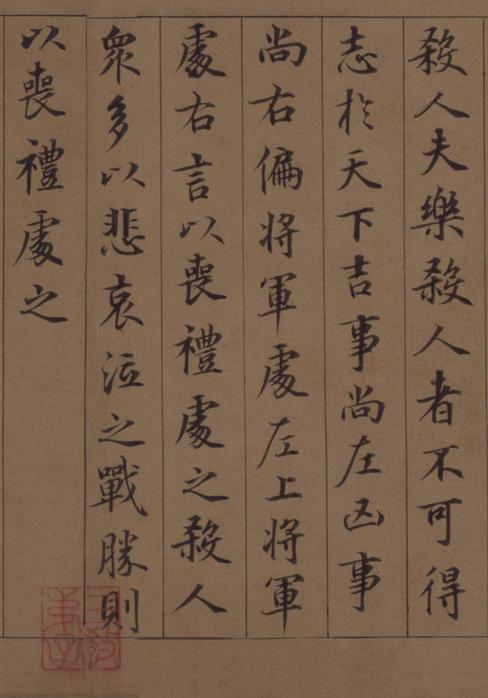 殺人夫樂殺人者不可得
志於天下吉事尚左凶事
尚右偏将軍處左上将軍
處右言以喪禮處之殺人
衆多以悲哀泣之戰勝則
以喪禮處之